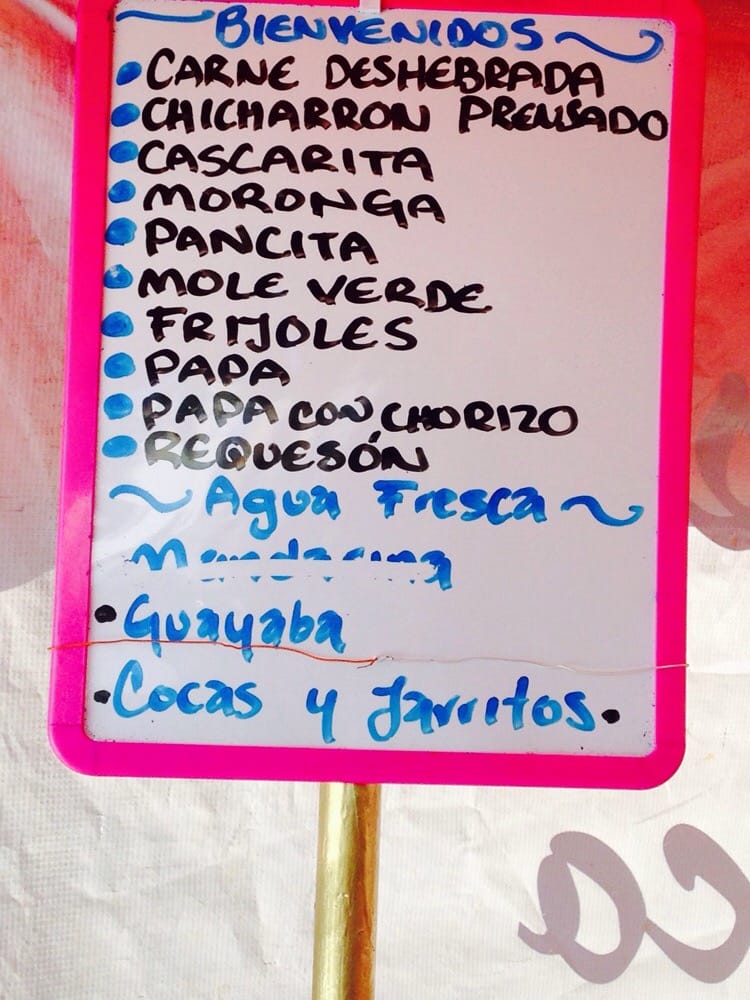 BIENVENIDOS
CARNE DESHEBRADA
CHICHARRON PRENSADO
CASCARITA
MORONGA
PANCITA
MOLE VERDE
FRIJOLES
PAPA
PAPA CON CHORIZO
REQUESÓN
~ Agua Fresca ~
Mandarina
• Guayaba
• Cocas y Jarritos •